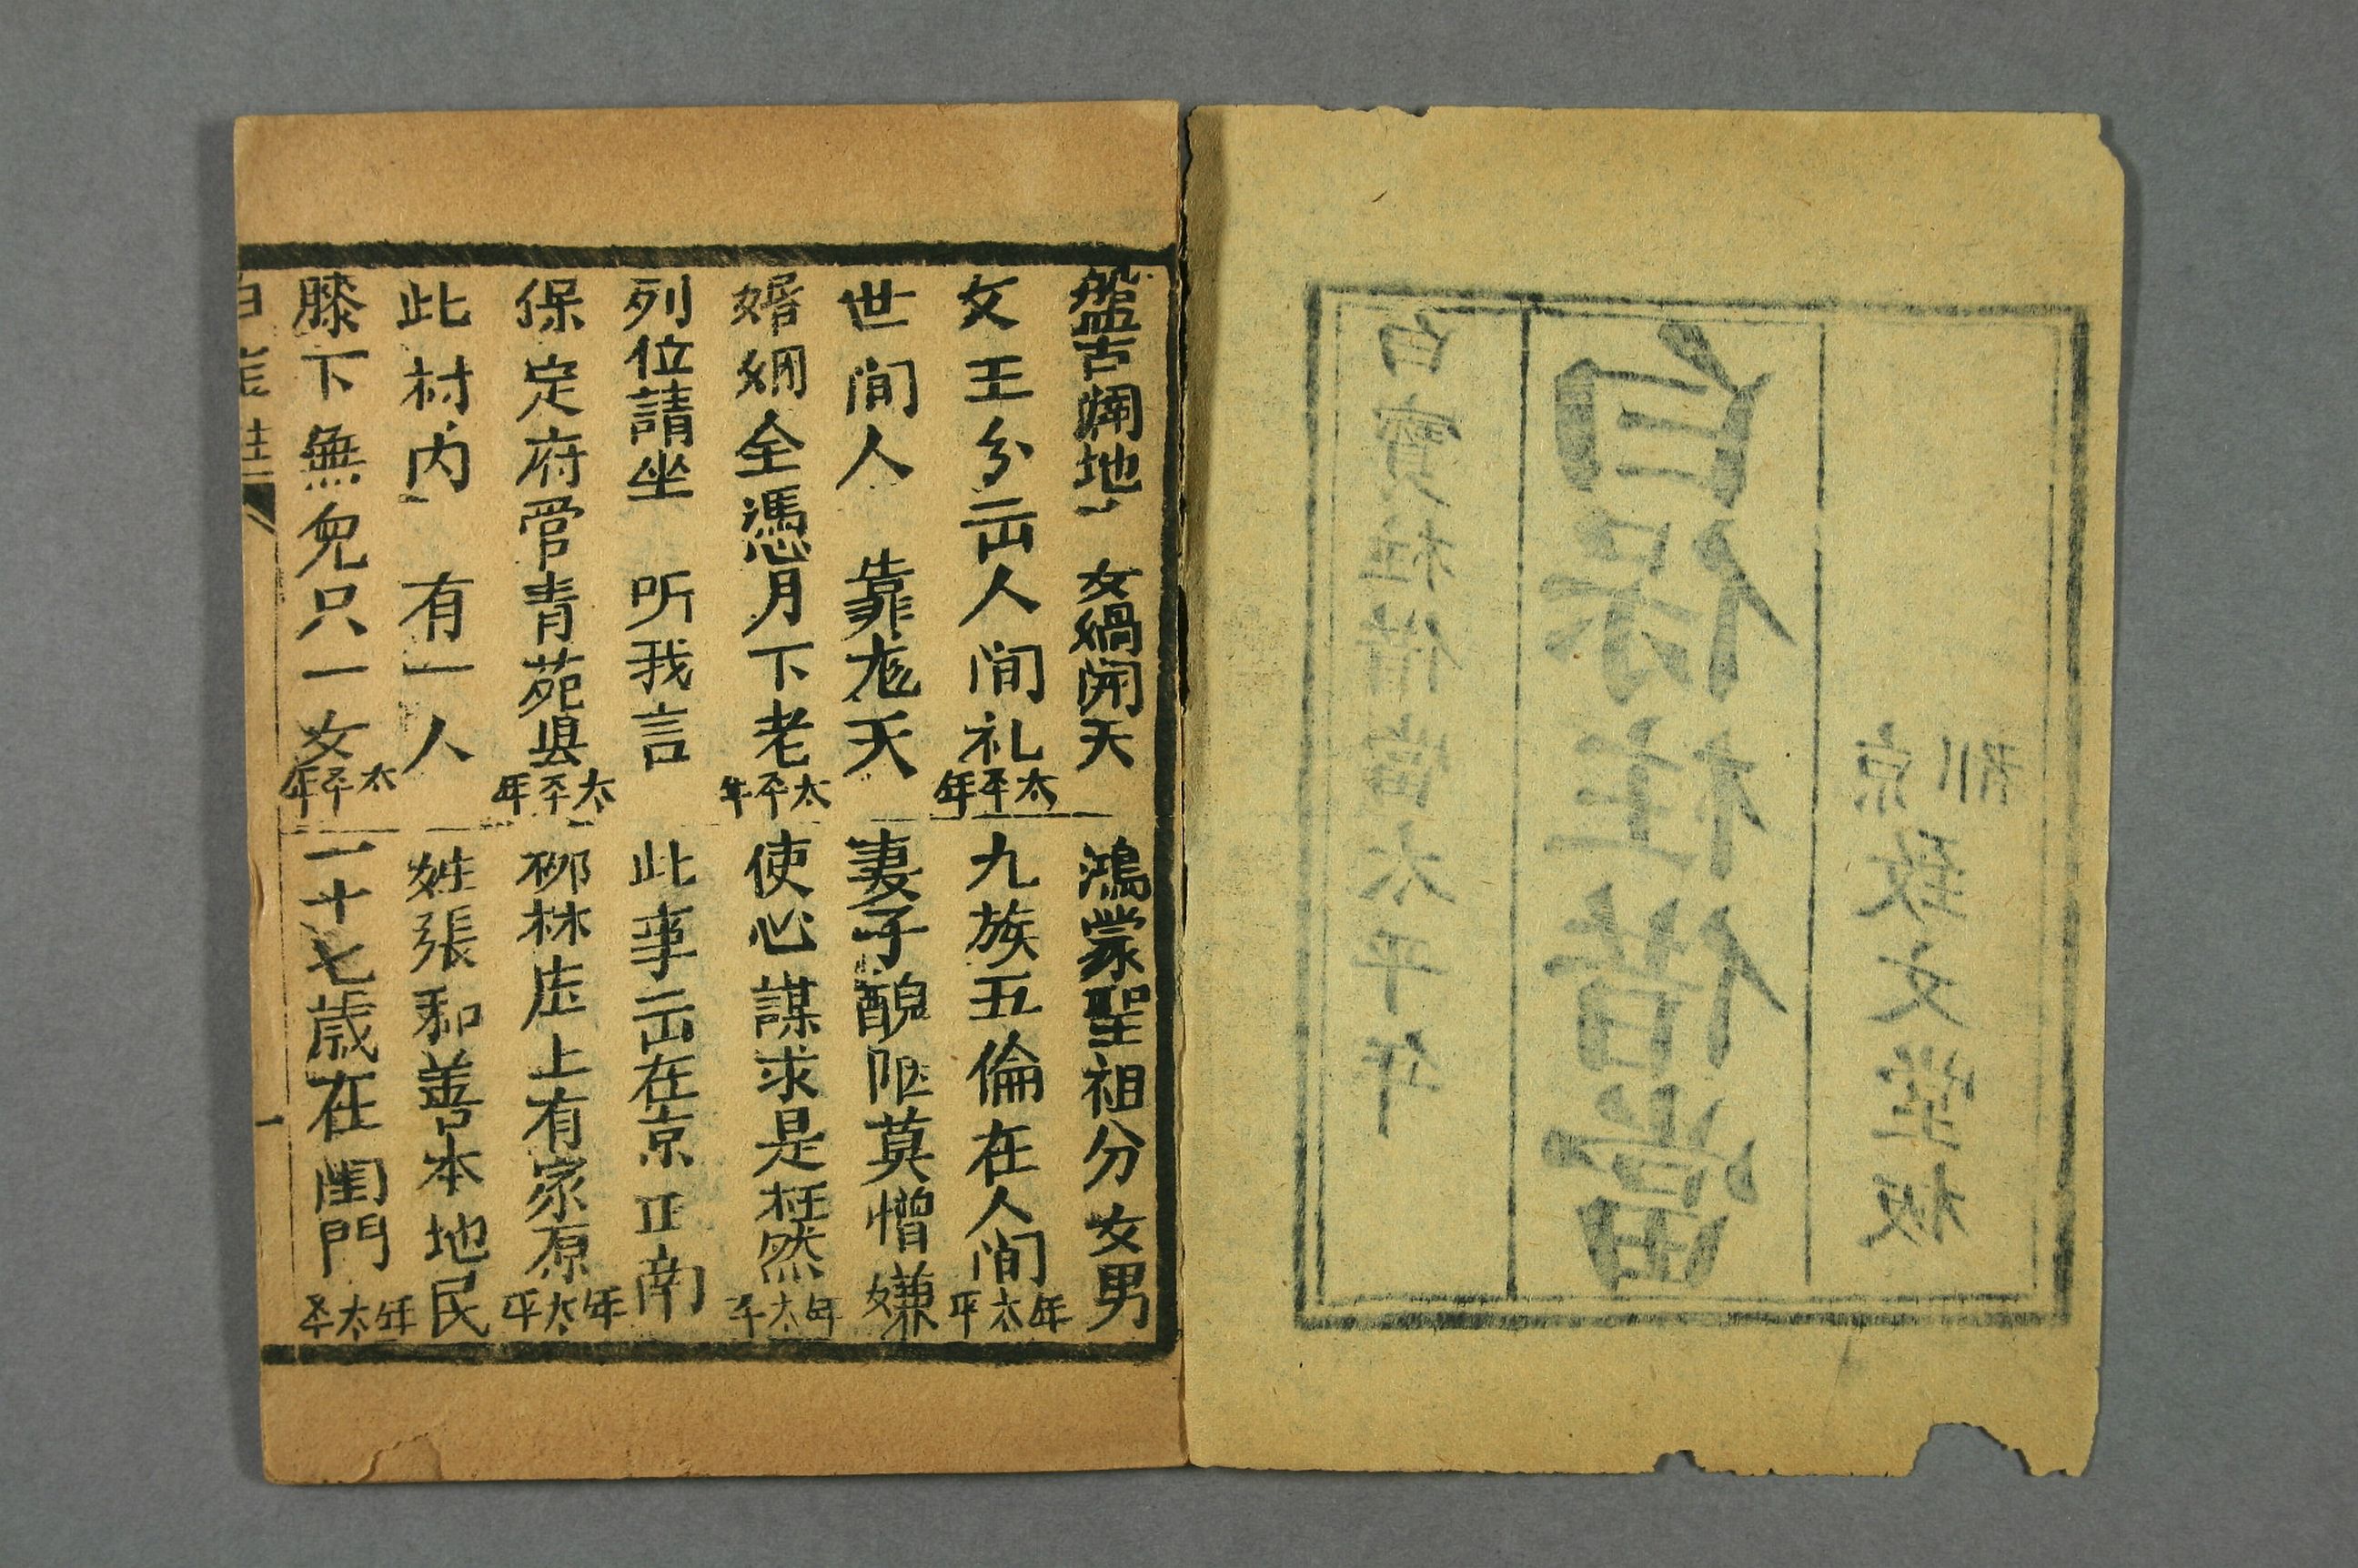 京都
致文堂板
白保柱借當
白寶柱借當太平年
盤古闢地 女媧開天 鴻蒙聖祖分女男
女王分出人间礼 太平年 九族五倫在人间 年太平
世间人 靠尨天 妻子醜陋莫憎嫌
婚姻全憑月下老 太平年 使心謀求是枉然 年太平
列位請坐 听我言 此事出在京正南
保定府管青苑县 太平年 柳林庄上有家原 年太平
此村内 有一人 姓張和善本地民
膝下無兒只一女 太平年 一十七歲在闺門 年太平